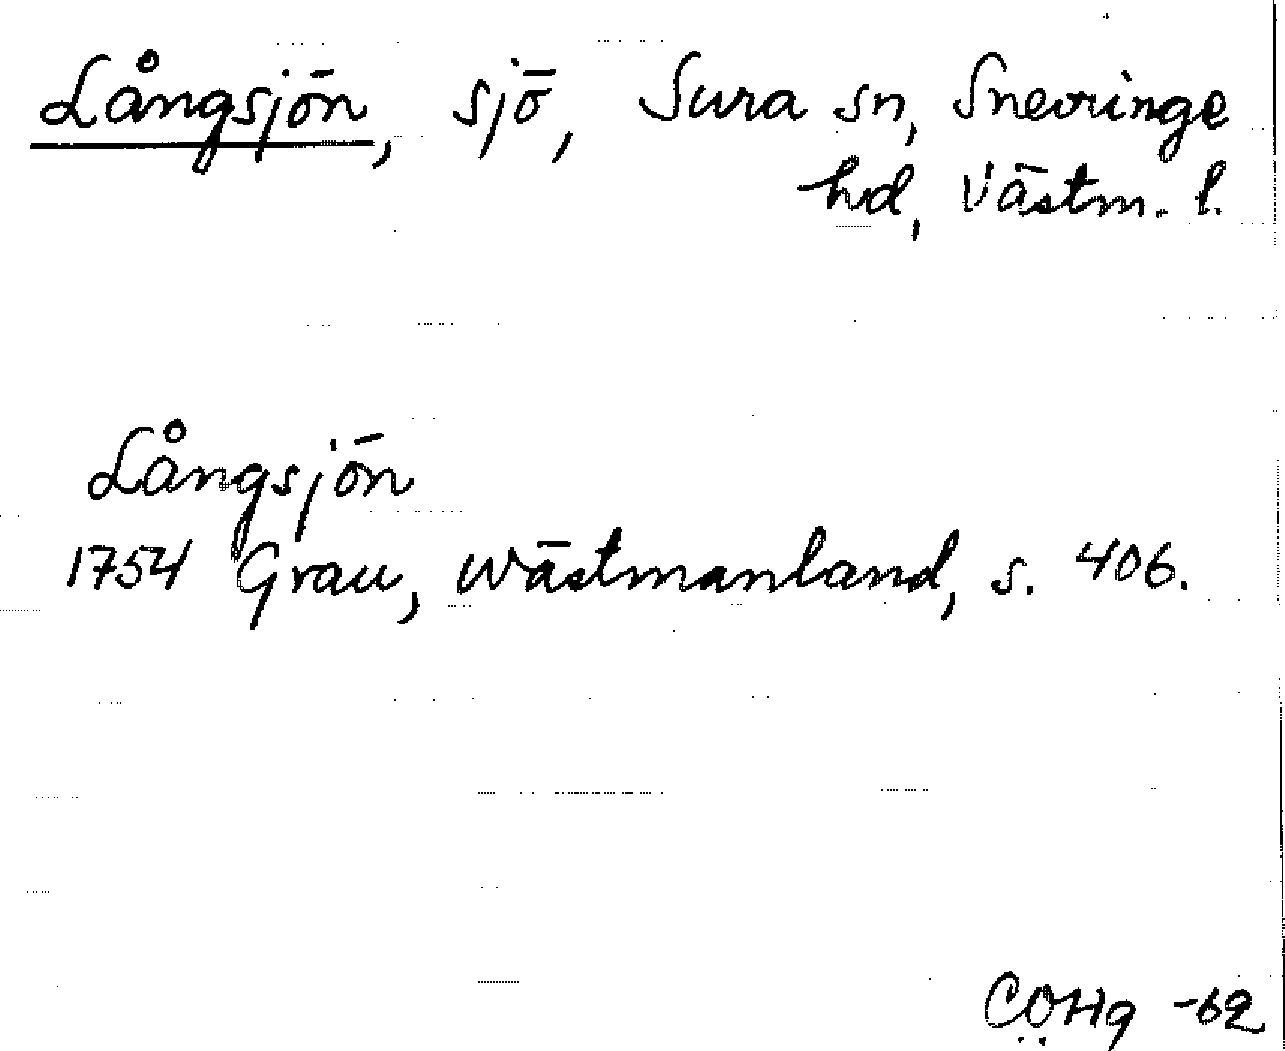 Långsjön, sjö, Sura sn, Snevringe
hd, Västm. l.
Långsjön
1754 Grau, Wästmanland, s. 406.
CÖHg -62